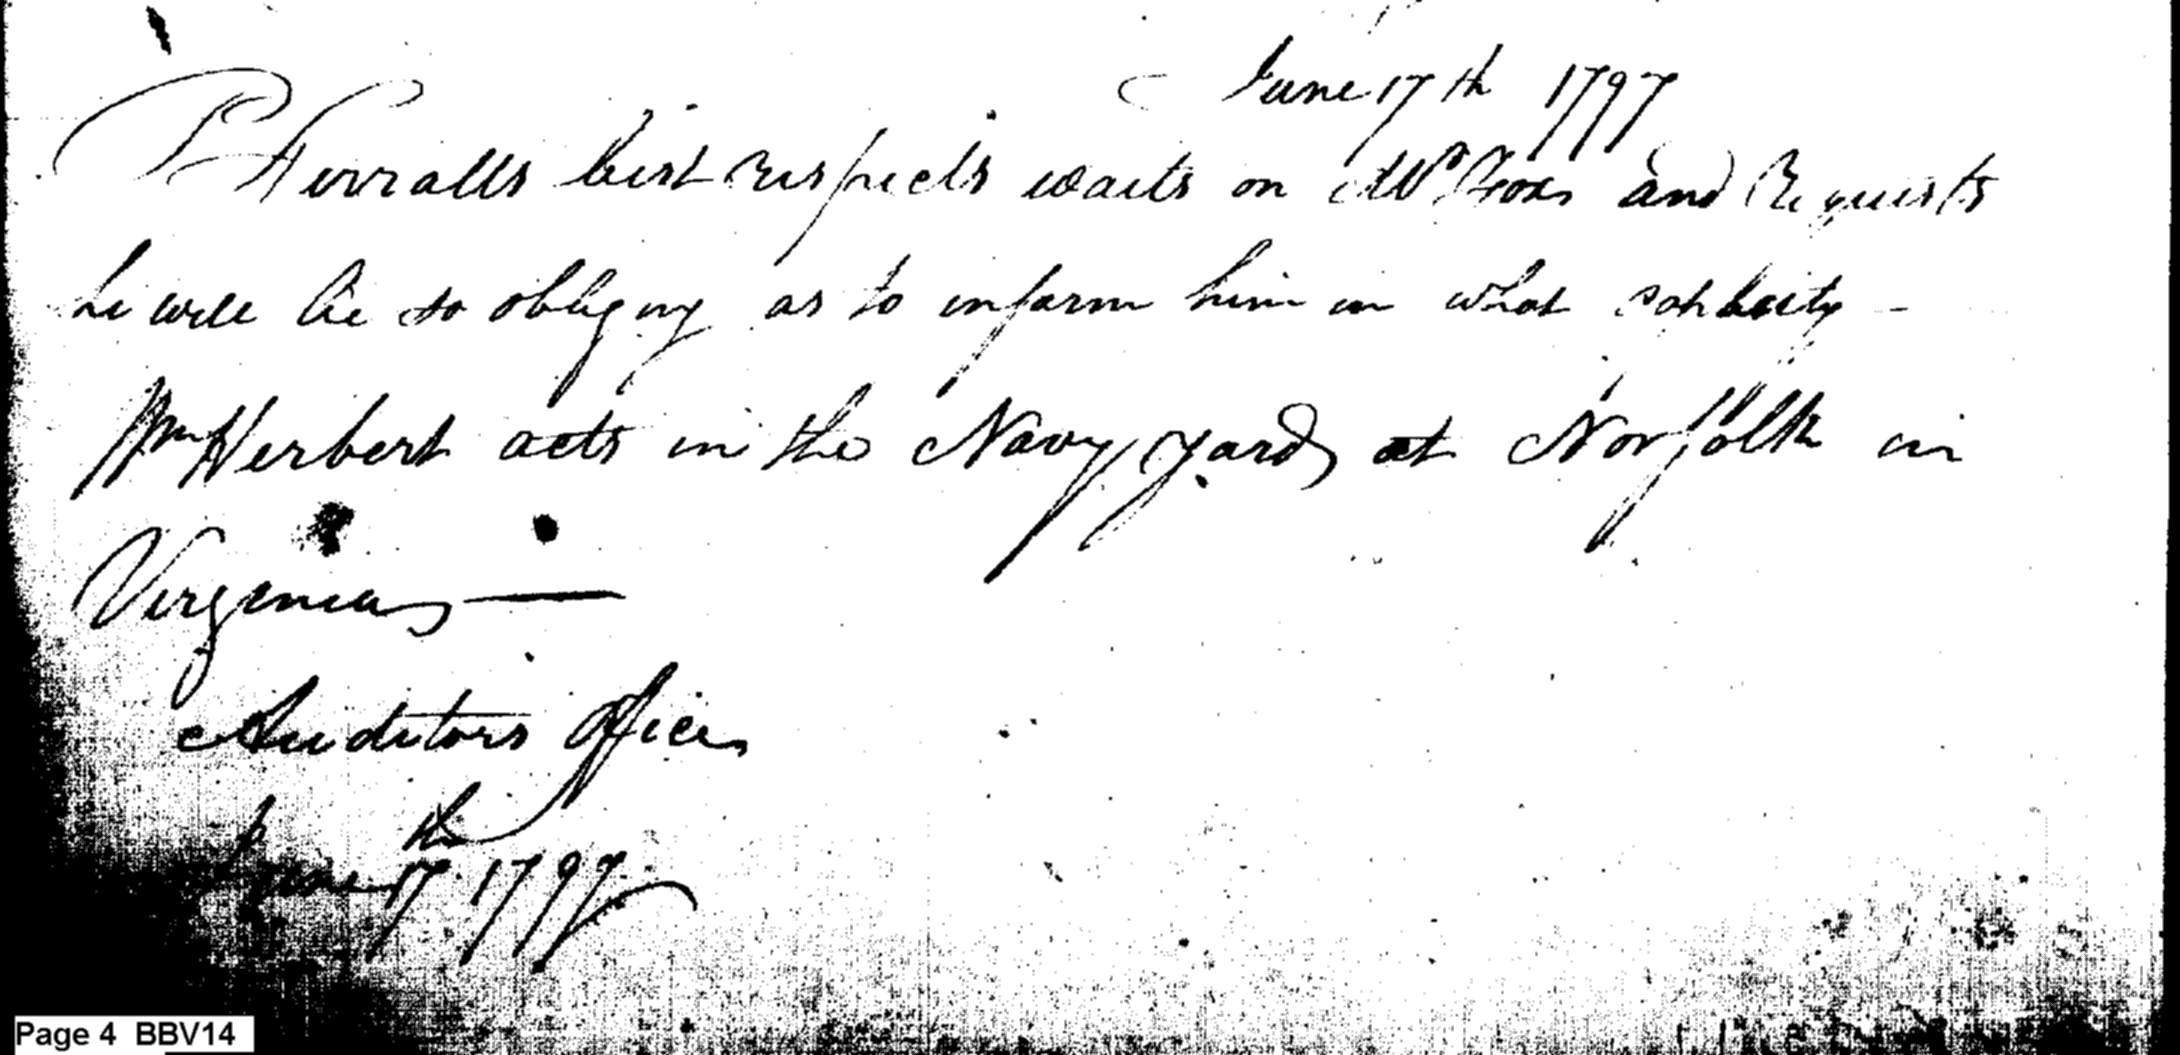 June 17th 1797
P Ferralls best respects waits on Mr Fox and Requests
he will be so obliging as to inform him in what capacity -
Wm Herbert acts in the Navy yard at Norfolk in
Virginia —
Auditors Office
June 17th 1797
Page 4 BBV14